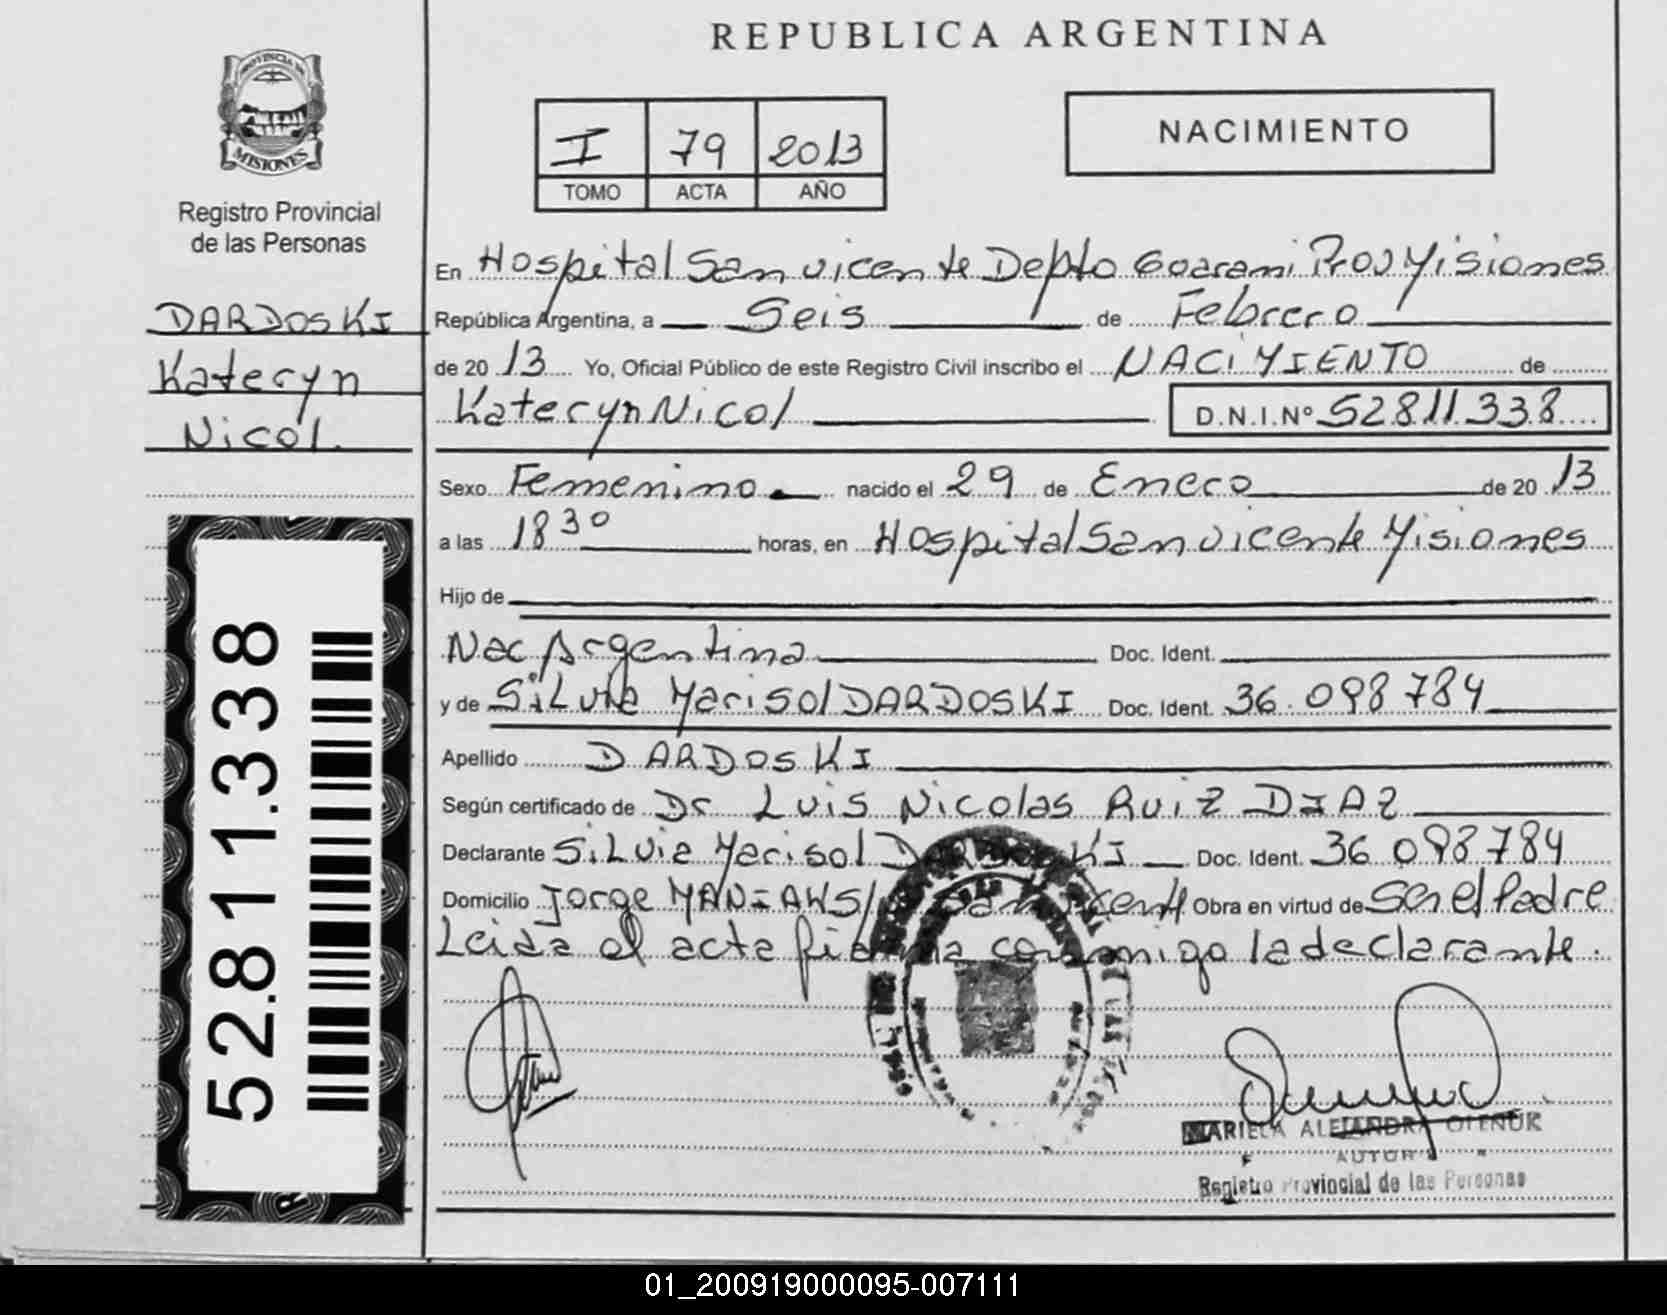 REPUBLICA ARGENTINA
PROVINCIA DE
MISIONES
Registro Provincial
de las Personas
I 79 2013
TOMO ACTA AÑO
NACIMIENTO
DARDOSKI
Kateryn
Nicol.
52.811.338
En Hospital San vicente Depto Guarani Prov Misiones
República Argentina, a Seis de Febrero
de 20 13 Yo, Oficial Público de este Registro Civil inscribo el NACIMIENTO de
Kateryn Nicol D.N.I.Nº 52.811.338
Sexo Femenino nacido el 29 de Enero de 20 13
a las 18 30 horas, en Hospital San vicente Misiones
Hijo de
Nac Argentina Doc. Ident.
y de SiLvia Marisol DARDOSKI Doc. Ident. 36.098784
Apellido DARDOSKI
Según certificado de Dr Luis Nicolas Ruiz DIAZ
Declarante SiLvia Marisol DARDOSKI Doc. Ident. 36 098784
Domicilio Jorge San Vicente Obra en virtud de Ser el Padre
Leida el acta firma conmigo la declarante.
MARIELA ALEJANDRA OLENUK
Registro Provincial de las Personas
01_200919000095-007111